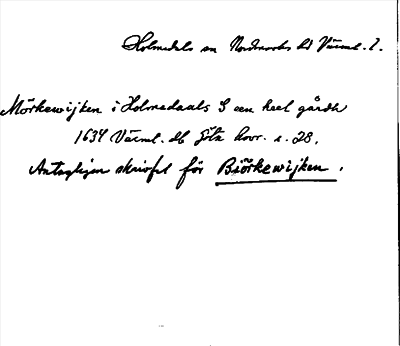 Holmedals sn Nordmarks hd Värml. l.
Mörkewijken i Holmedaals S een heel gårdh
1634 Värml. db Göta hovr. s. 28.
Antagligen skrivfel för Biörkewijken.